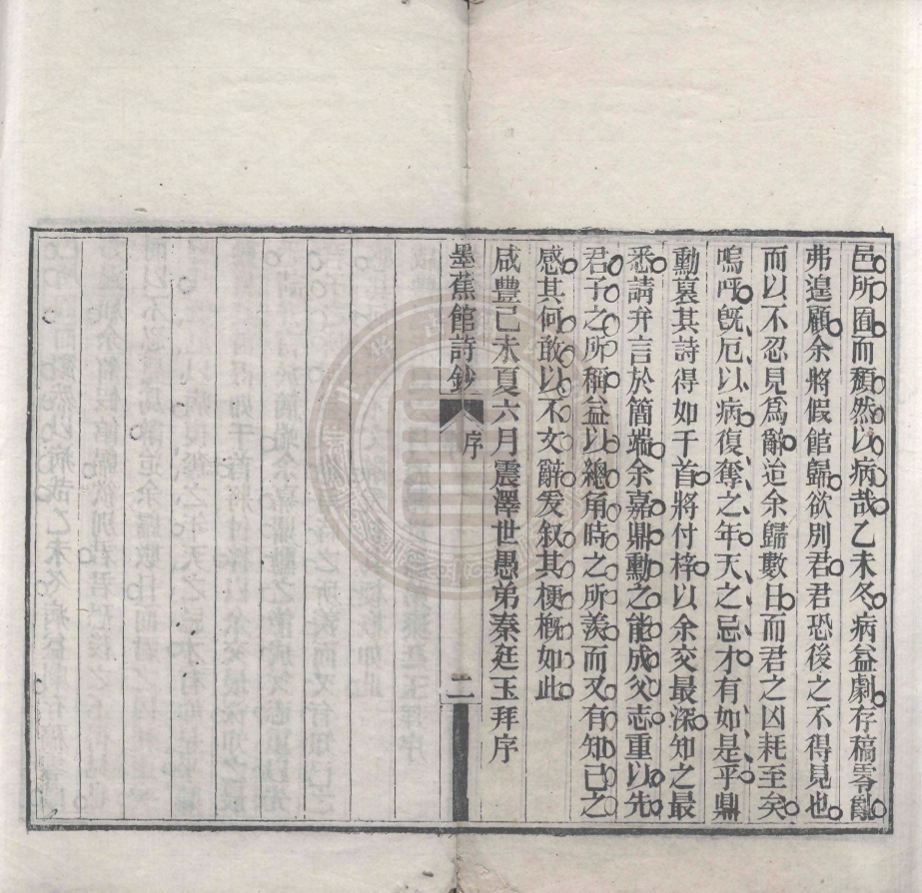 邑所囿而頹然以病哉乙未冬病益劇存稿零亂
弗遑顧余將假館歸欲別君君恐後之不得見也
而以不忍見爲辭迨余歸數日而君之凶耗至矣
嗚呼旣厄以病復奪之年天之忌才有如是乎鼎
勳裒其詩得如干首將付梓以余交最深知之最
悉請弁言於簡端余嘉鼎勳之能成父志重以先
君子之所稱益以總角時之所羨而又有知己之
感其何敢以不文辭爰叙其梗概如此
咸豐己未夏六月震澤世愚弟秦廷玉拜序
墨蕉館詩鈔 序 二